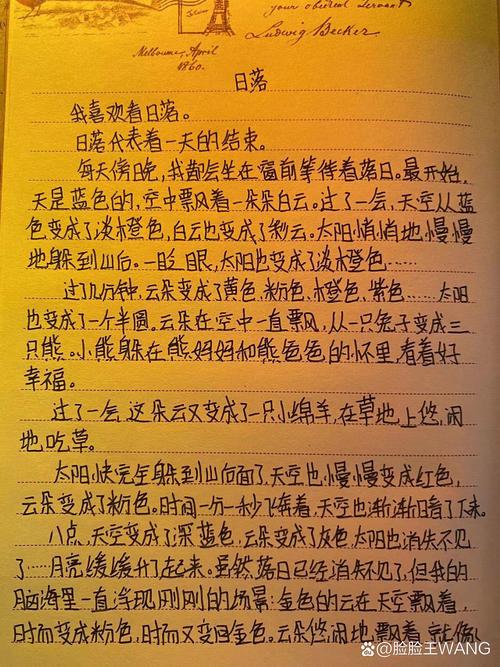 your obedient Servant
Ludwig Becker.
Melbourne, April
1860.
日落
我喜欢看日落。
日落代表着一天的结束。
每天傍晚,我都会坐在窗前等待着落日。最开始,
天是蓝色的,空中飘风着一朵朵白云。过了一会,天空从蓝
色变成了淡橙色,白云也变成了彩云。太阳悄悄地、慢慢
地躲到山后。一眨眼,太阳也变成了淡橙色……
过几分钟,云朵变成了黄色、粉色、橙色、紫色……太阳
也变成了一个半圆。云朵在空中一直飘,从一只兔子变成三
只熊。小熊躲在熊妈妈和熊爸爸的怀里,看着好
幸福。
过了一会,这朵云又变成了一只小绵羊,在草地上悠闲
地吃草。
太阳快完全躲到山后面了,天空也慢慢变成红色,
云朵变成了粉色。时间一分一秒飞奔着,天空也渐渐暗了下来。
八点,天空变成了深蓝色,云朵变成了灰色,太阳也消失不见
了……月亮缓缓升了起来。虽然落日已经消失不见了,但我的
脑海里一直浮现刚刚的场景:金色的云在天空飘着,
时而变成粉色,时而又变回金色。云朵悠闲地飘着,就像
@脸脸王WANG